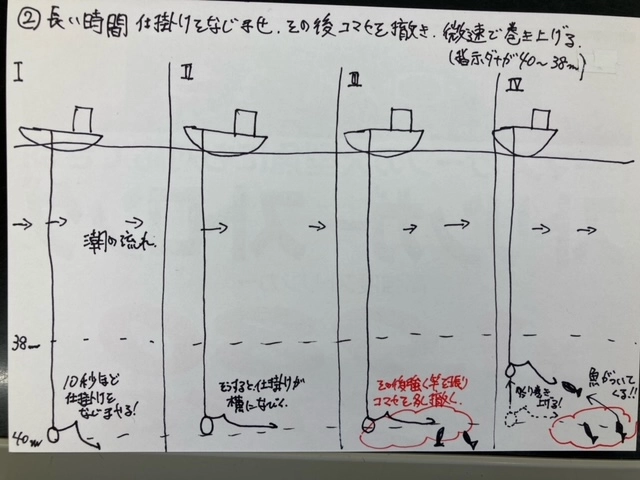 ② 長い時間 仕掛けをなじませ、その後コマセを撒き、微速で巻き上げる。
(指示ダナが40〜38m)
I
II
III
IV
潮の流れ
38m
10秒ほど
仕掛けを
なじませる!
そうすると仕掛けが
横になびく。
その後強く竿を振り
コマセを多く撒く。
巻き
上げる!
魚がついて
くる!!
40m